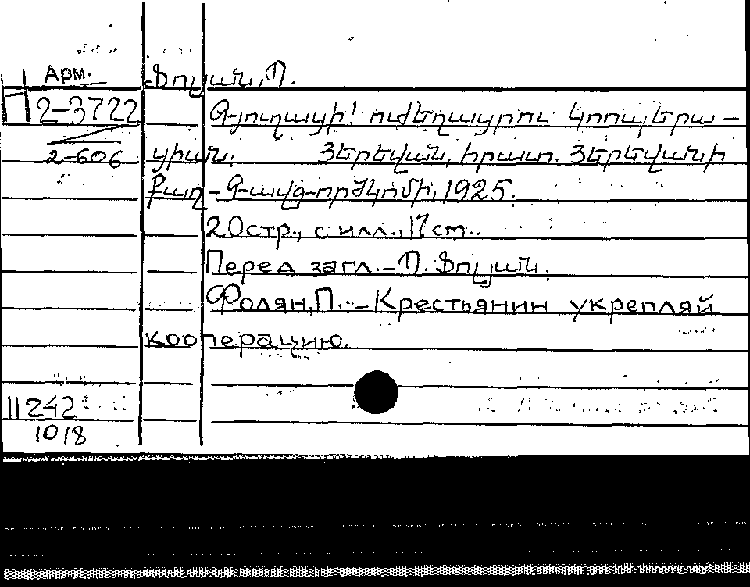 Арм.
Ֆոլյան, Պ.
П 2-3722
Գյուղացի! ուժեղացրու կոոպերա-
2-606
ցիան. Յերեվան, հրատ. Յերեվանի
Քաղ-Գավգործկոմի, 1925.
20стр., с илл., 17cm.
Перед загл.-Պ. Ֆոլյան.
Фолян, П. -Крестьянин укрепляй
кооперацию.
11242
1018